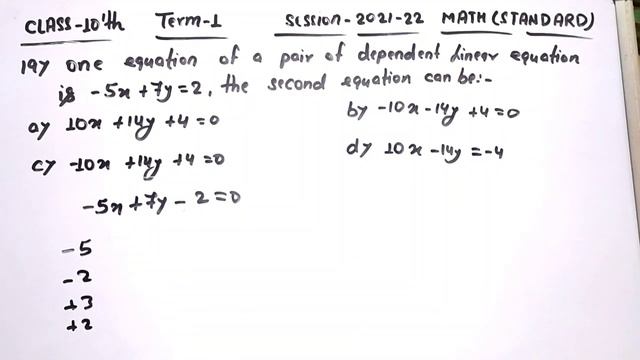 CLASS-10'th Term-1 SESSION-2021-22 MATH (STANDARD)
19) One equation of a pair of dependent linear equation
is -5x+7y=2, the second equation can be:-
a) 10x+14y+4=0 b) -10x-14y+4=0
c) -10x+14y+4=0 d) 10x-14y=-4
-5x+7y-2=0
-5
-2
+3
+2